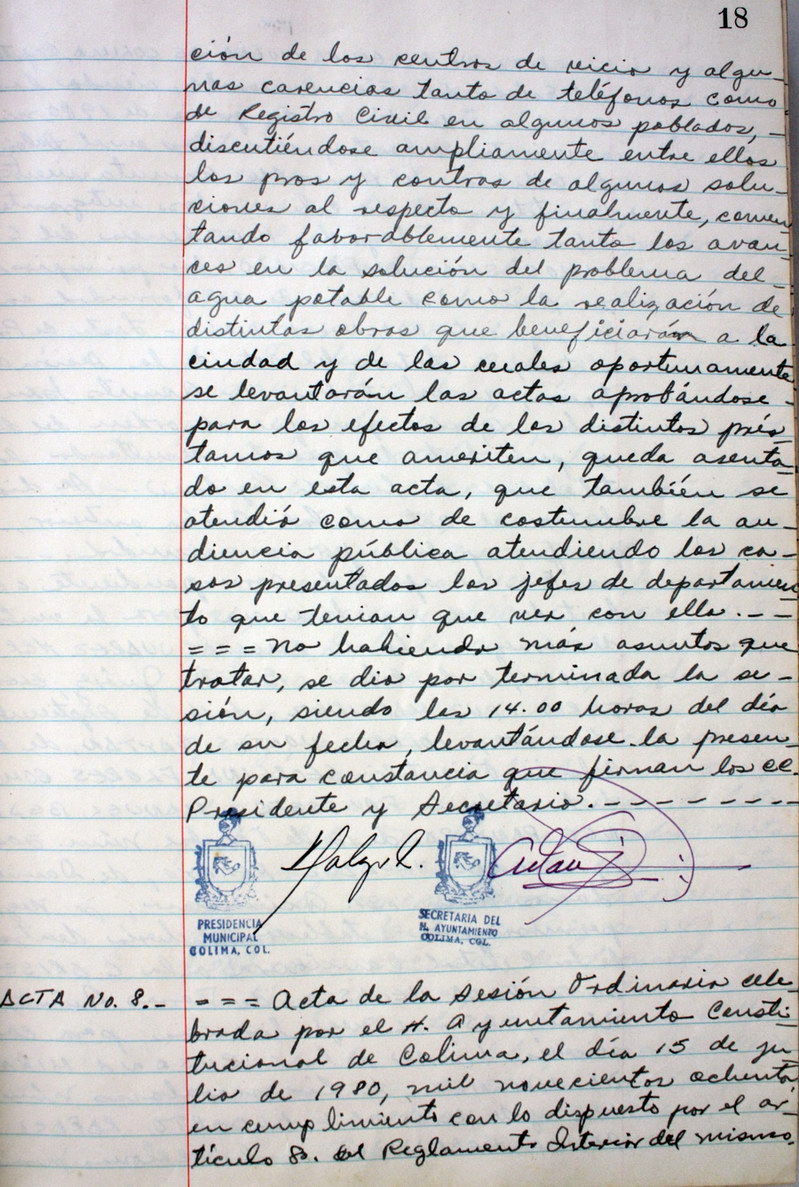 18
ción de los centros de vicio y algu-
nas carencias tanto de teléfonos como
de Registro Civil en algunos poblados, -
discutiéndose ampliamente entre ellos
los pros y contras de algunas solu-
ciones al respecto y finalmente, comen
tando favorablemente tanto los avan-
ces en la solución del problema del -
agua potable como la realización de
distintas obras que beneficiarán a la
ciudad y de las cuales oportunamente
se levantarán las actas aprobándose -
para los efectos de los distintos prés
tamos que ameriten, queda asenta-
do en esta acta, que también se
atendió como de costumbre la au-
diencia pública atendiendo los ca-
sos presentados los jefes de departamen
to que tenian que ver con ello. - -
= = = No habiendo más asuntos que
tratar, se dio por terminada la se-
sión, siendo las 14.00 horas del día
de su fecha, levantándose la presen-
te para constancia que firman los CC.
Presidente y Secretario. - - - - - - - -
PRESIDENCIA
MUNICIPAL
COLIMA, COL.
SECRETARIA DEL
H. AYUNTAMIENTO
COLIMA, COL.
ACTA No. 8. - = = = Acta de la Sesión Ordinaria cele-
brada por el H. Ayuntamiento Consti-
tucional de Colima, el día 15 de ju-
lio de 1980, mil novecientos ochenta,
en cumplimiento con lo dispuesto por el ar-
tículo 8o. del Reglamento Interior del mismo,